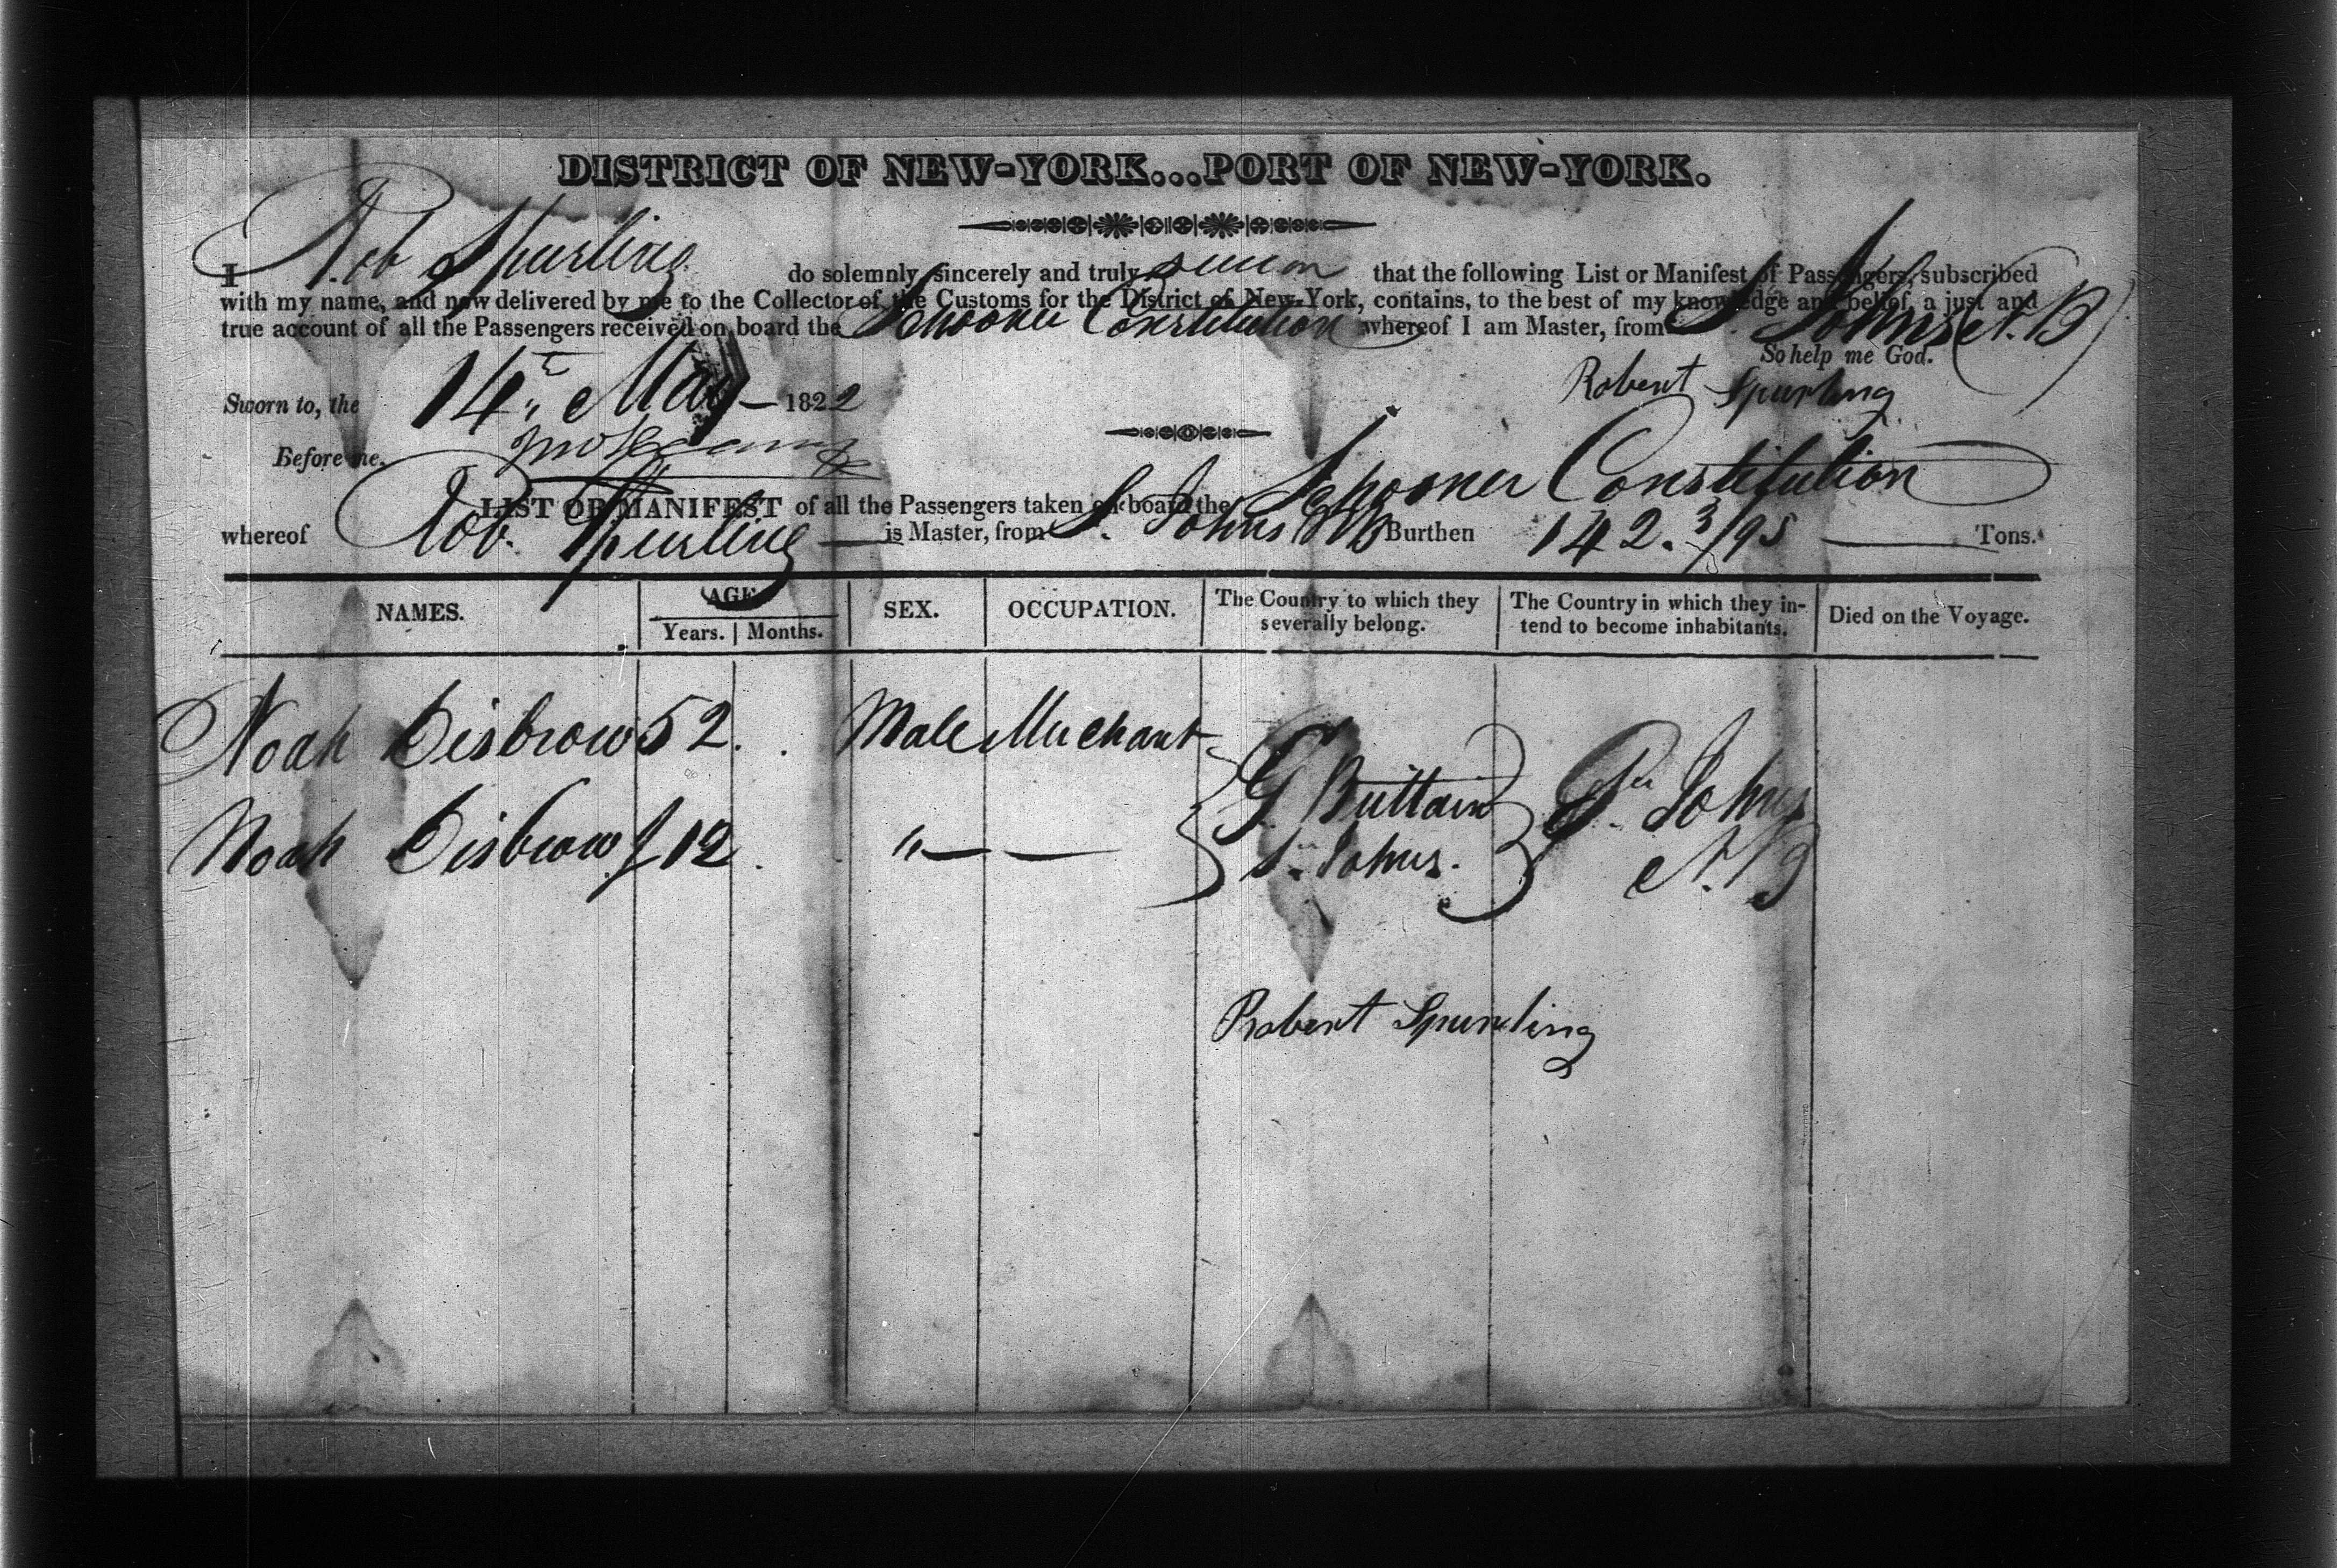 DISTRICT OF NEW-YORK...PORT OF NEW-YORK.
I Rob Spurling do solemnly, sincerely and truly swear that the following List or Manifest of Passengers, subscribed
with my name, and now delivered by me to the Collector of the Customs for the District of New-York, contains, to the best of my knowledge and belief, a just and
true account of all the Passengers received on board the Schooner Constitution whereof I am Master, from St Johns (N.B)
So help me God.
Sworn to, the 14th May 1822
Robert Spurling
Before me.
LIST OR MANIFEST of all the Passengers taken on board the Schooner Constitution
whereof Rob. Spurling is Master, from St Johns NB Burthen 142. 3/95 Tons.
NAMES. AGE SEX. OCCUPATION. The Country to which they severally belong. The Country in which they intend to become inhabitants. Died on the Voyage.
Years. Months.
Noah Disbrow 52. Male Merchant
G Brittain St Johns
Noah Disbrow J 12 " — —
St. Johns. N.B
Robert Spurling